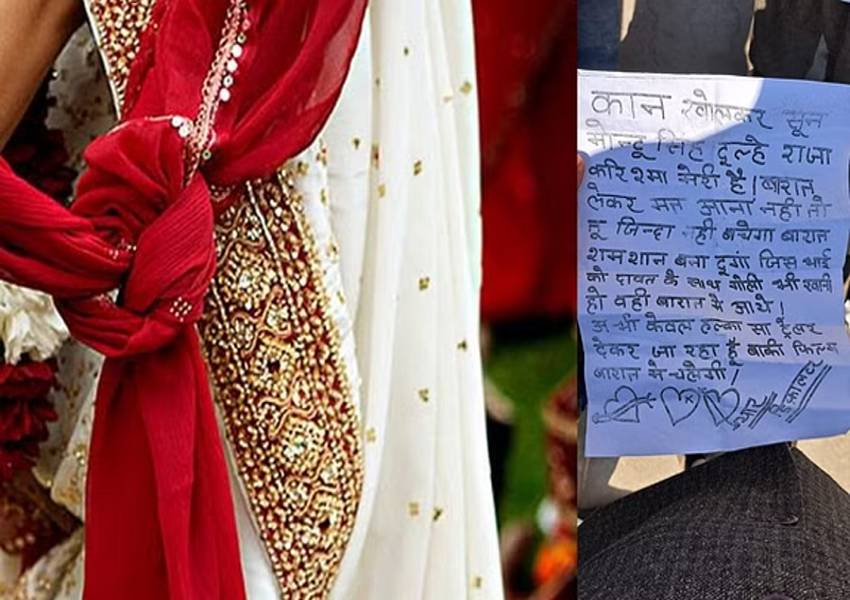 कान खोलकर सून
मोन्टू सिंह दूल्हे राजा
करिश्मा मेरी है। बारात
लेकर मत आना नहीं तो
तू जिन्दा नहीं बचेगा बारात
शमशान बना दूगां जिस भाई
को दावत के साथ गोली भी खानी
हो वही बारात मे आये।
अभी केवल हल्का सा ट्रेलर
देकर जा रहा हूँ बाकी फिल्म
बारात मे चलेगी।